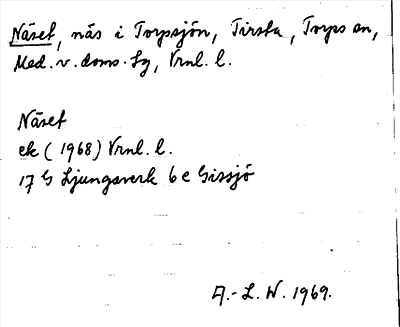 Näset, näs i Torpsjön, Tirsta, Torps sn,
Med. v. doms. sg, Vrnl. l.
Näset
ek (1968) Vrnl. l.
17 G Ljungaverk 6 e Gissjö
A.-L. W. 1969.